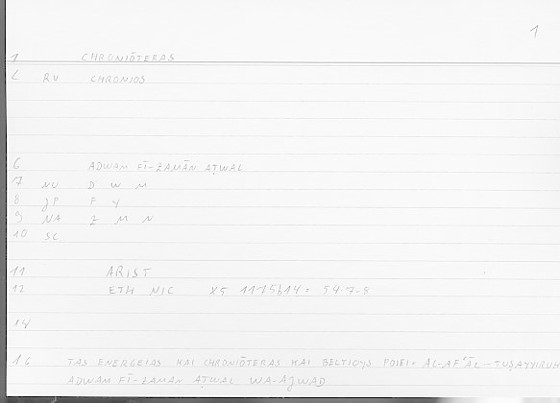 1
1 CHRONIŌTERAS
2 RV CHRONIOS
6 ADWAM FĪ-ZAMĀN AṬWAL
7 NU D W M
8 JP F Y
9 NA Z M N
10 SC
11 ARIST
12 ETH NIC X5 1175b14 = 59.7-8
14
16 TAS ENERGEIAS KAI CHRONIŌTERAS KAI BELTIOYS POIEI = AL-AFʿĀL-TUṢAYYIRUH
ADWAM FĪ-ZAMAN AṬWAL WA-AJWAD